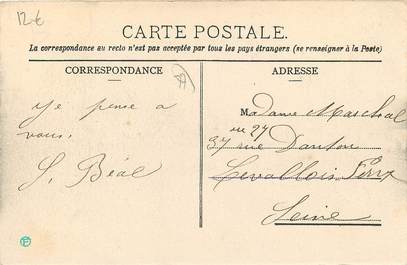 12€
CARTE POSTALE.
La correspondance au recto n'est pas acceptée par tous les pays étrangers (se renseigner à la Poste)
CORRESPONDANCE
ADRESSE
Je pense a
vous.
S. Béal
Madame Maréchal
27
37 rue Danton
Levallois Perret
Seine